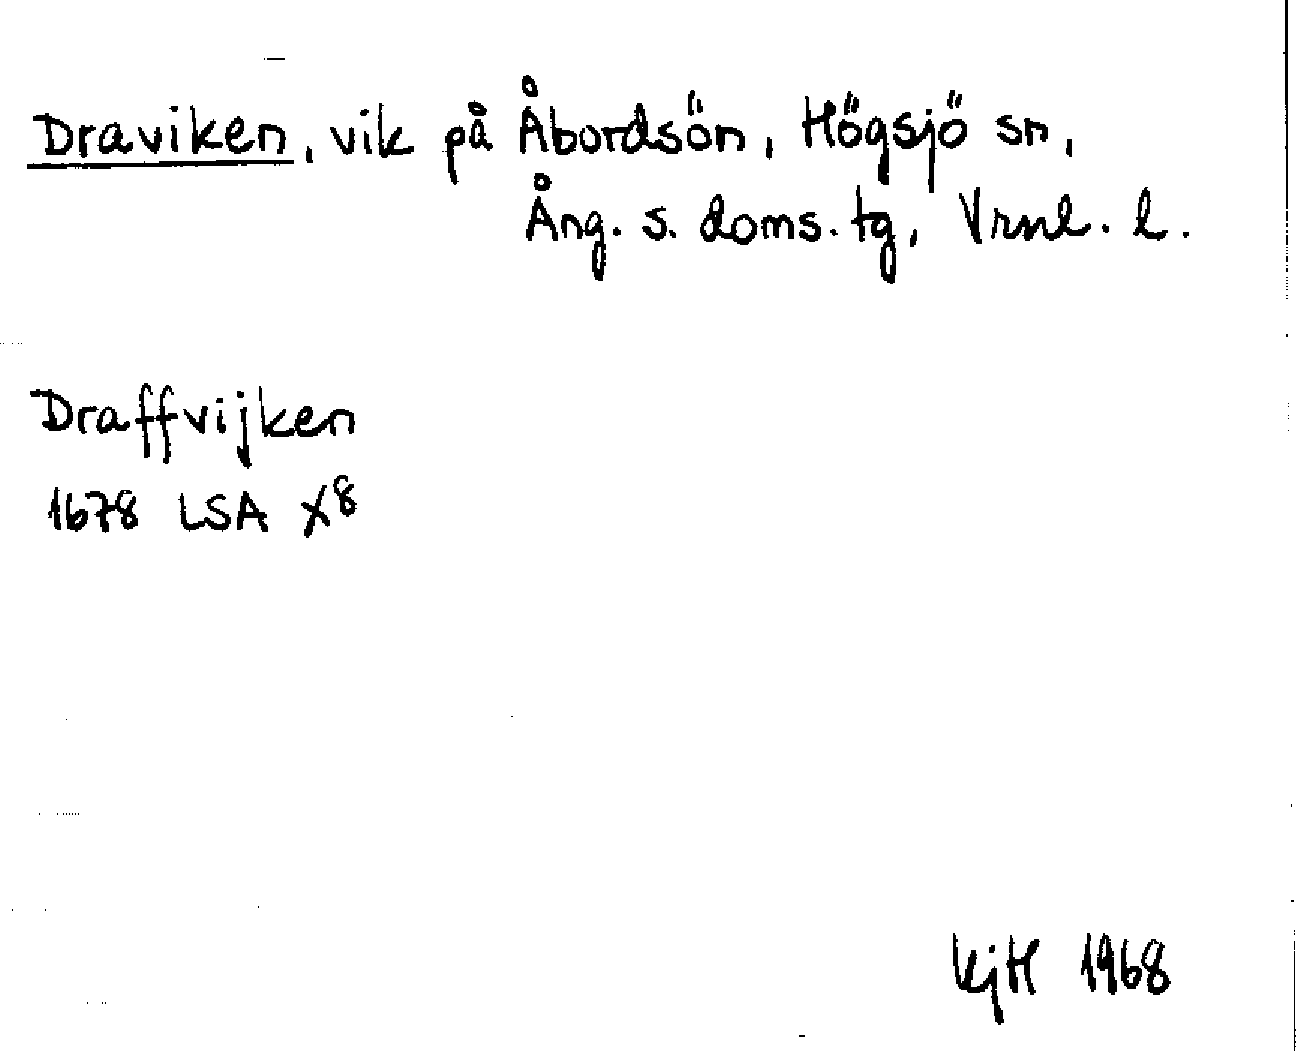 Draviken, vik på Åbordsön, Högsjö sn,
Ång. s. doms. tg, Vrnl. l.
Draffvijken
1678 LSA X8
KjH 1968